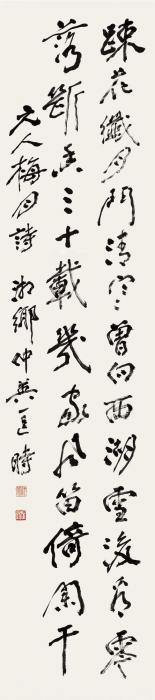 踈花纖月鬥清寒曾向西湖雪後看零
落斷香三十載幾家風笛倚闌干
元人梅月詩 湘鄉仲英匡時